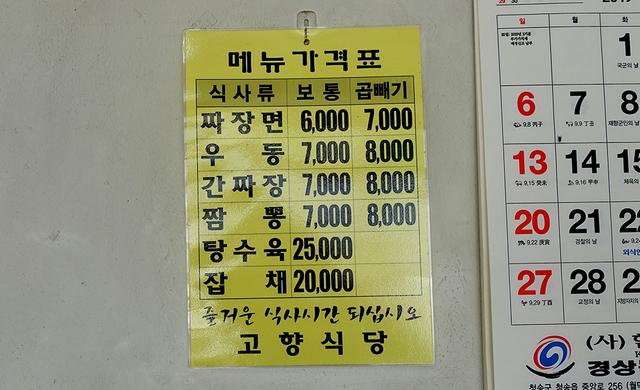 메뉴가격표
식사류 보통 곱빼기
짜장면 6,000 7,000
우동 7,000 8,000
간짜장 7,000 8,000
짬뽕 7,000 8,000
탕수육 25,000
잡채 20,000
즐거운 식사시간 되십시오
고향식당
일 월
1
국군의 날
6 7 8
9.8 丙子 9.9 丁丑 재향군인의 날
13 14 15
9.15 癸未 9.16 甲申 체육의
20 21 22
9.22 庚寅 경찰의 날
27 28 29
9.29 丁酉 교정의 날 지방자치의 날
(사)
경상
청송군 청송읍 중앙로 256 (월